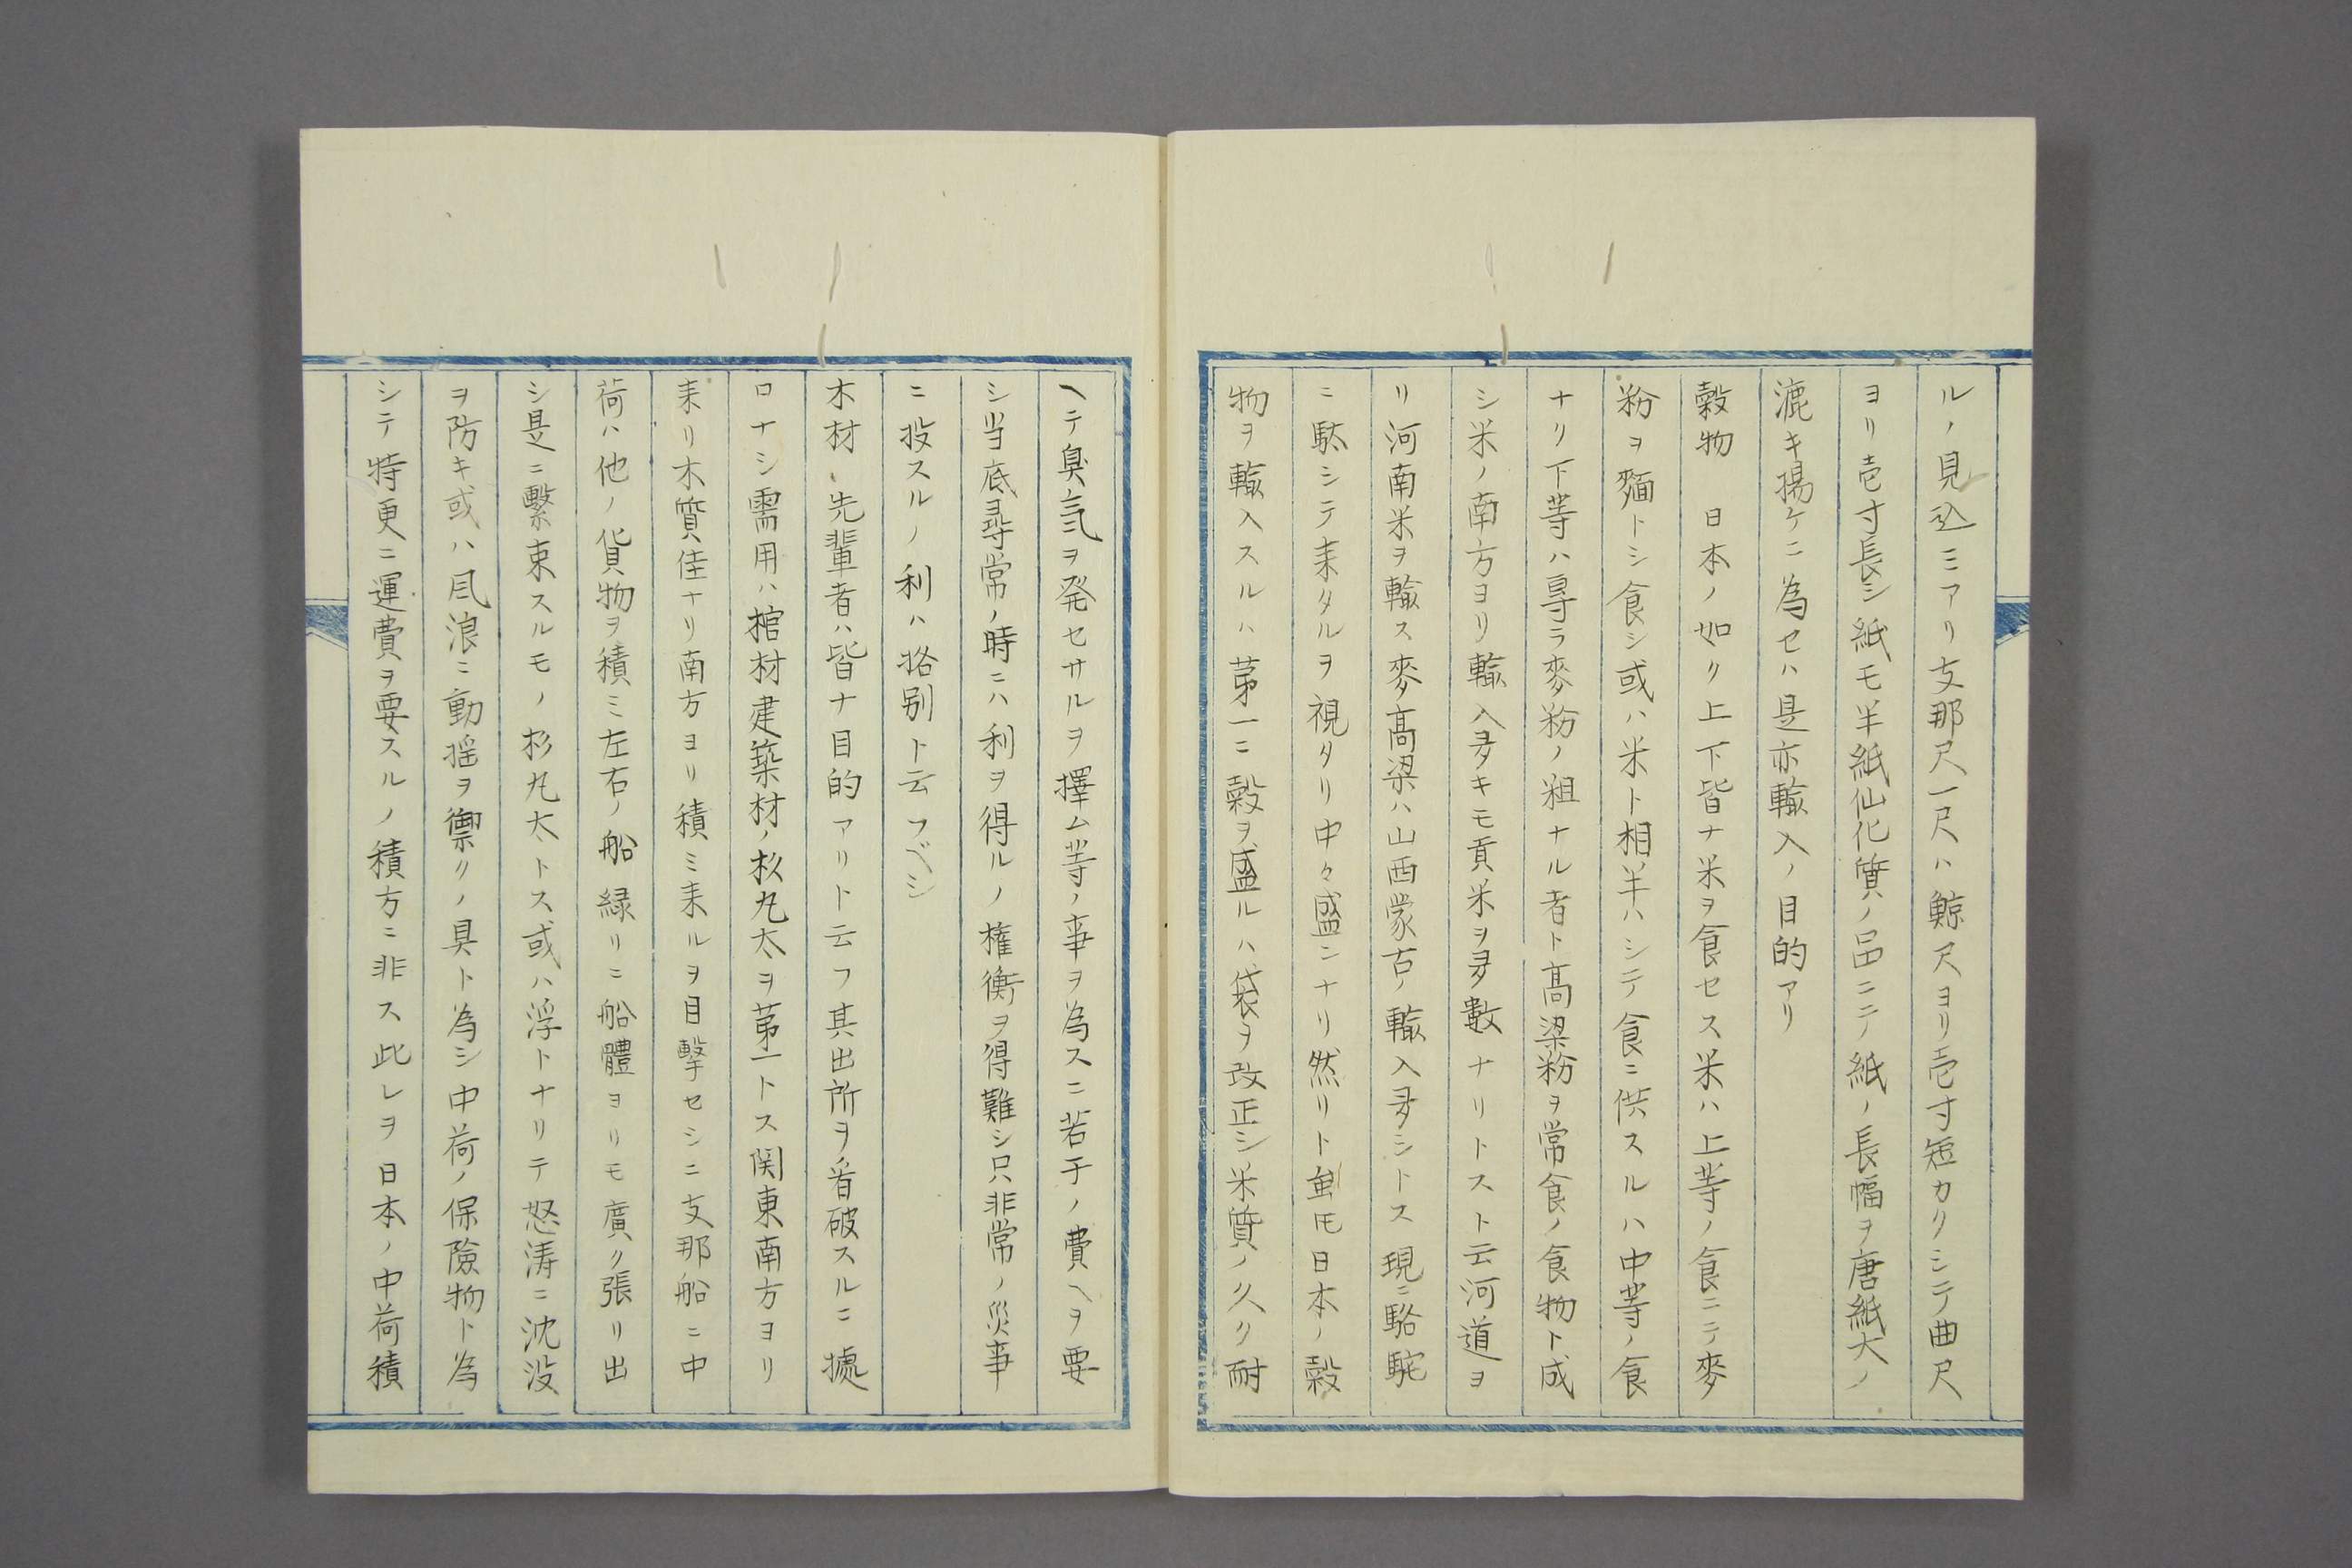 ルノ見込ミアリ支那尺一尺ハ鯨尺ヨリ壱寸短カクシテ曲尺
ヨリ壱寸長シ紙モ半紙仙化質ノ品ニテ紙ノ長幅ヲ唐紙大ノ
漉キ揚ケニ為セハ是亦輸入ノ目的アリ
穀物　日本ノ如ク上下皆ナ米ヲ食セス米ハ上等ノ食ニテ麥
粉ヲ麺トシ食シ或ハ米ト相半ハシテ食ニ供スルハ中等ノ食
ナリ下等ハ専ラ麥粉ノ粗ナル者ト高梁粉ヲ常食ノ食物ト成
シ米ノ南方ヨリ輸入多キモ貢米ヲ多數ナリトスト云河道ヲ
リ河南米ヲ輸ス麥高梁ハ山西蒙古ノ輸入多シトス現ニ駱駝
ニ駄シテ耒タルヲ視タリ中々盛ニナリ然リト虽モ日本ノ穀
物ヲ輸入スルハ苐一ニ穀ヲ盛ルハ袋ヲ改正シ米質ノ久ク耐
ヘテ臭氣ヲ発セサルヲ擇ム等ノ事ヲ為スニ若干ノ費ヘヲ要
シ当底尋常ノ時ニハ利ヲ得ルノ権衡ヲ得難シ只非常ノ災事
ニ投スルノ利ハ挌別ト云フベシ
木材　先輩者ハ皆ナ目的アリト云フ其出所ヲ看破スルニ據
ロナシ需用ハ棺材建築材ノ杉丸太ヲ苐一トス関東南方ヨリ
耒リ木質佳ナリ南方ヨリ積ミ耒ルヲ目撃セシニ支那船ニ中
荷ハ他ノ貨物ヲ積ミ左右ノ船緑リニ船體ヨリモ廣ク張リ出
シ是ニ繫束スルモノ杉丸太トス或ハ浮トナリテ怒涛ニ沈没
ヲ防キ或ハ風浪ニ動揺ヲ禦クノ具ト為シ中荷ノ保險物ト為
シテ特更ニ運費ヲ要スルノ積方ニ非ス此レヲ日本ノ中荷積